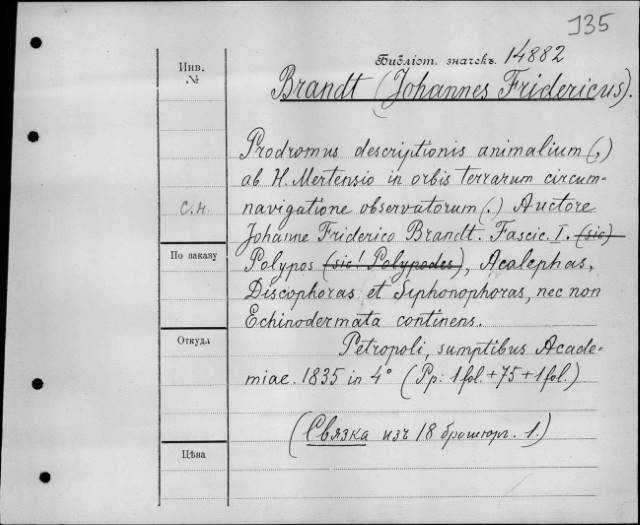 135
Инв.
№
Библіот. значекъ. 14882
Brandt (Johannes Fridericus).
Prodromus descriptionis animalium (,)
ab H. Mertensio in orbis terrarum circum-
с.н. navigatione observatorum (.) Auctore
Johanne Friderico Brandt. Fascic. I. (sic)
По заказу
Polypos (sic! Polypodes), Acalephas,
Discophoras et Siphonophoras, nec non
Echinodermata continens.
Откуда
Petropoli, sumptibus Acade-
miae. 1835 in 4° (Pp: 1 fol. + 75 + 1 fol.)
(Связка изъ 18 брошюръ. 1.)
Цѣна